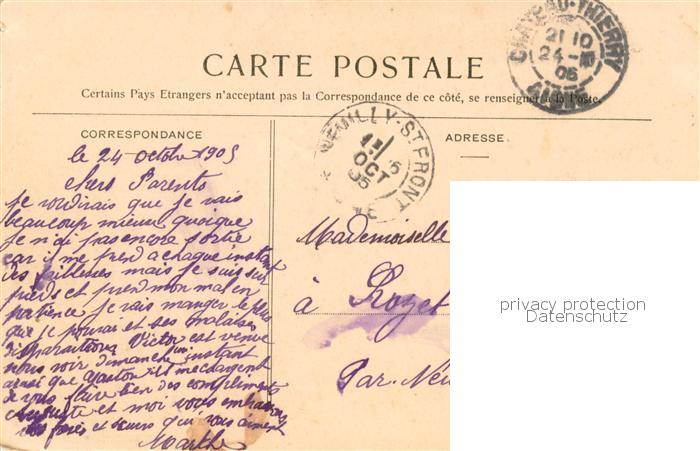 CARTE POSTALE
Certains Pays Etrangers n'acceptant pas la Correspondance de ce côté, se renseigner à la Poste.
CHATEAU-THIERRY
21 10
24 -
05
AISNE
NEUILLY-ST FRONT
OCT
05
CORRESPONDANCE
ADRESSE
le 24 octobre 1905
chers Parents
je voudrais que je vais
beaucoup mieux quoique
je n'ai pas encore sortie
car il me prend a chaque instant
des faiblesses mais je suis sur
pieds et prend mon mal en
patience je vais manger le plus
que je pourai et ses malaises
disparaitions Victor est venue
nous voir dimanche un instant
ainsi que Gaston ils me chargent
de vous faire bien des compliments
et moi vous embrassons
et sœurs qui vous aiment
Marthe
Mademoiselle
à Rozet
Par. Neu
privacy protection
Datenschutz